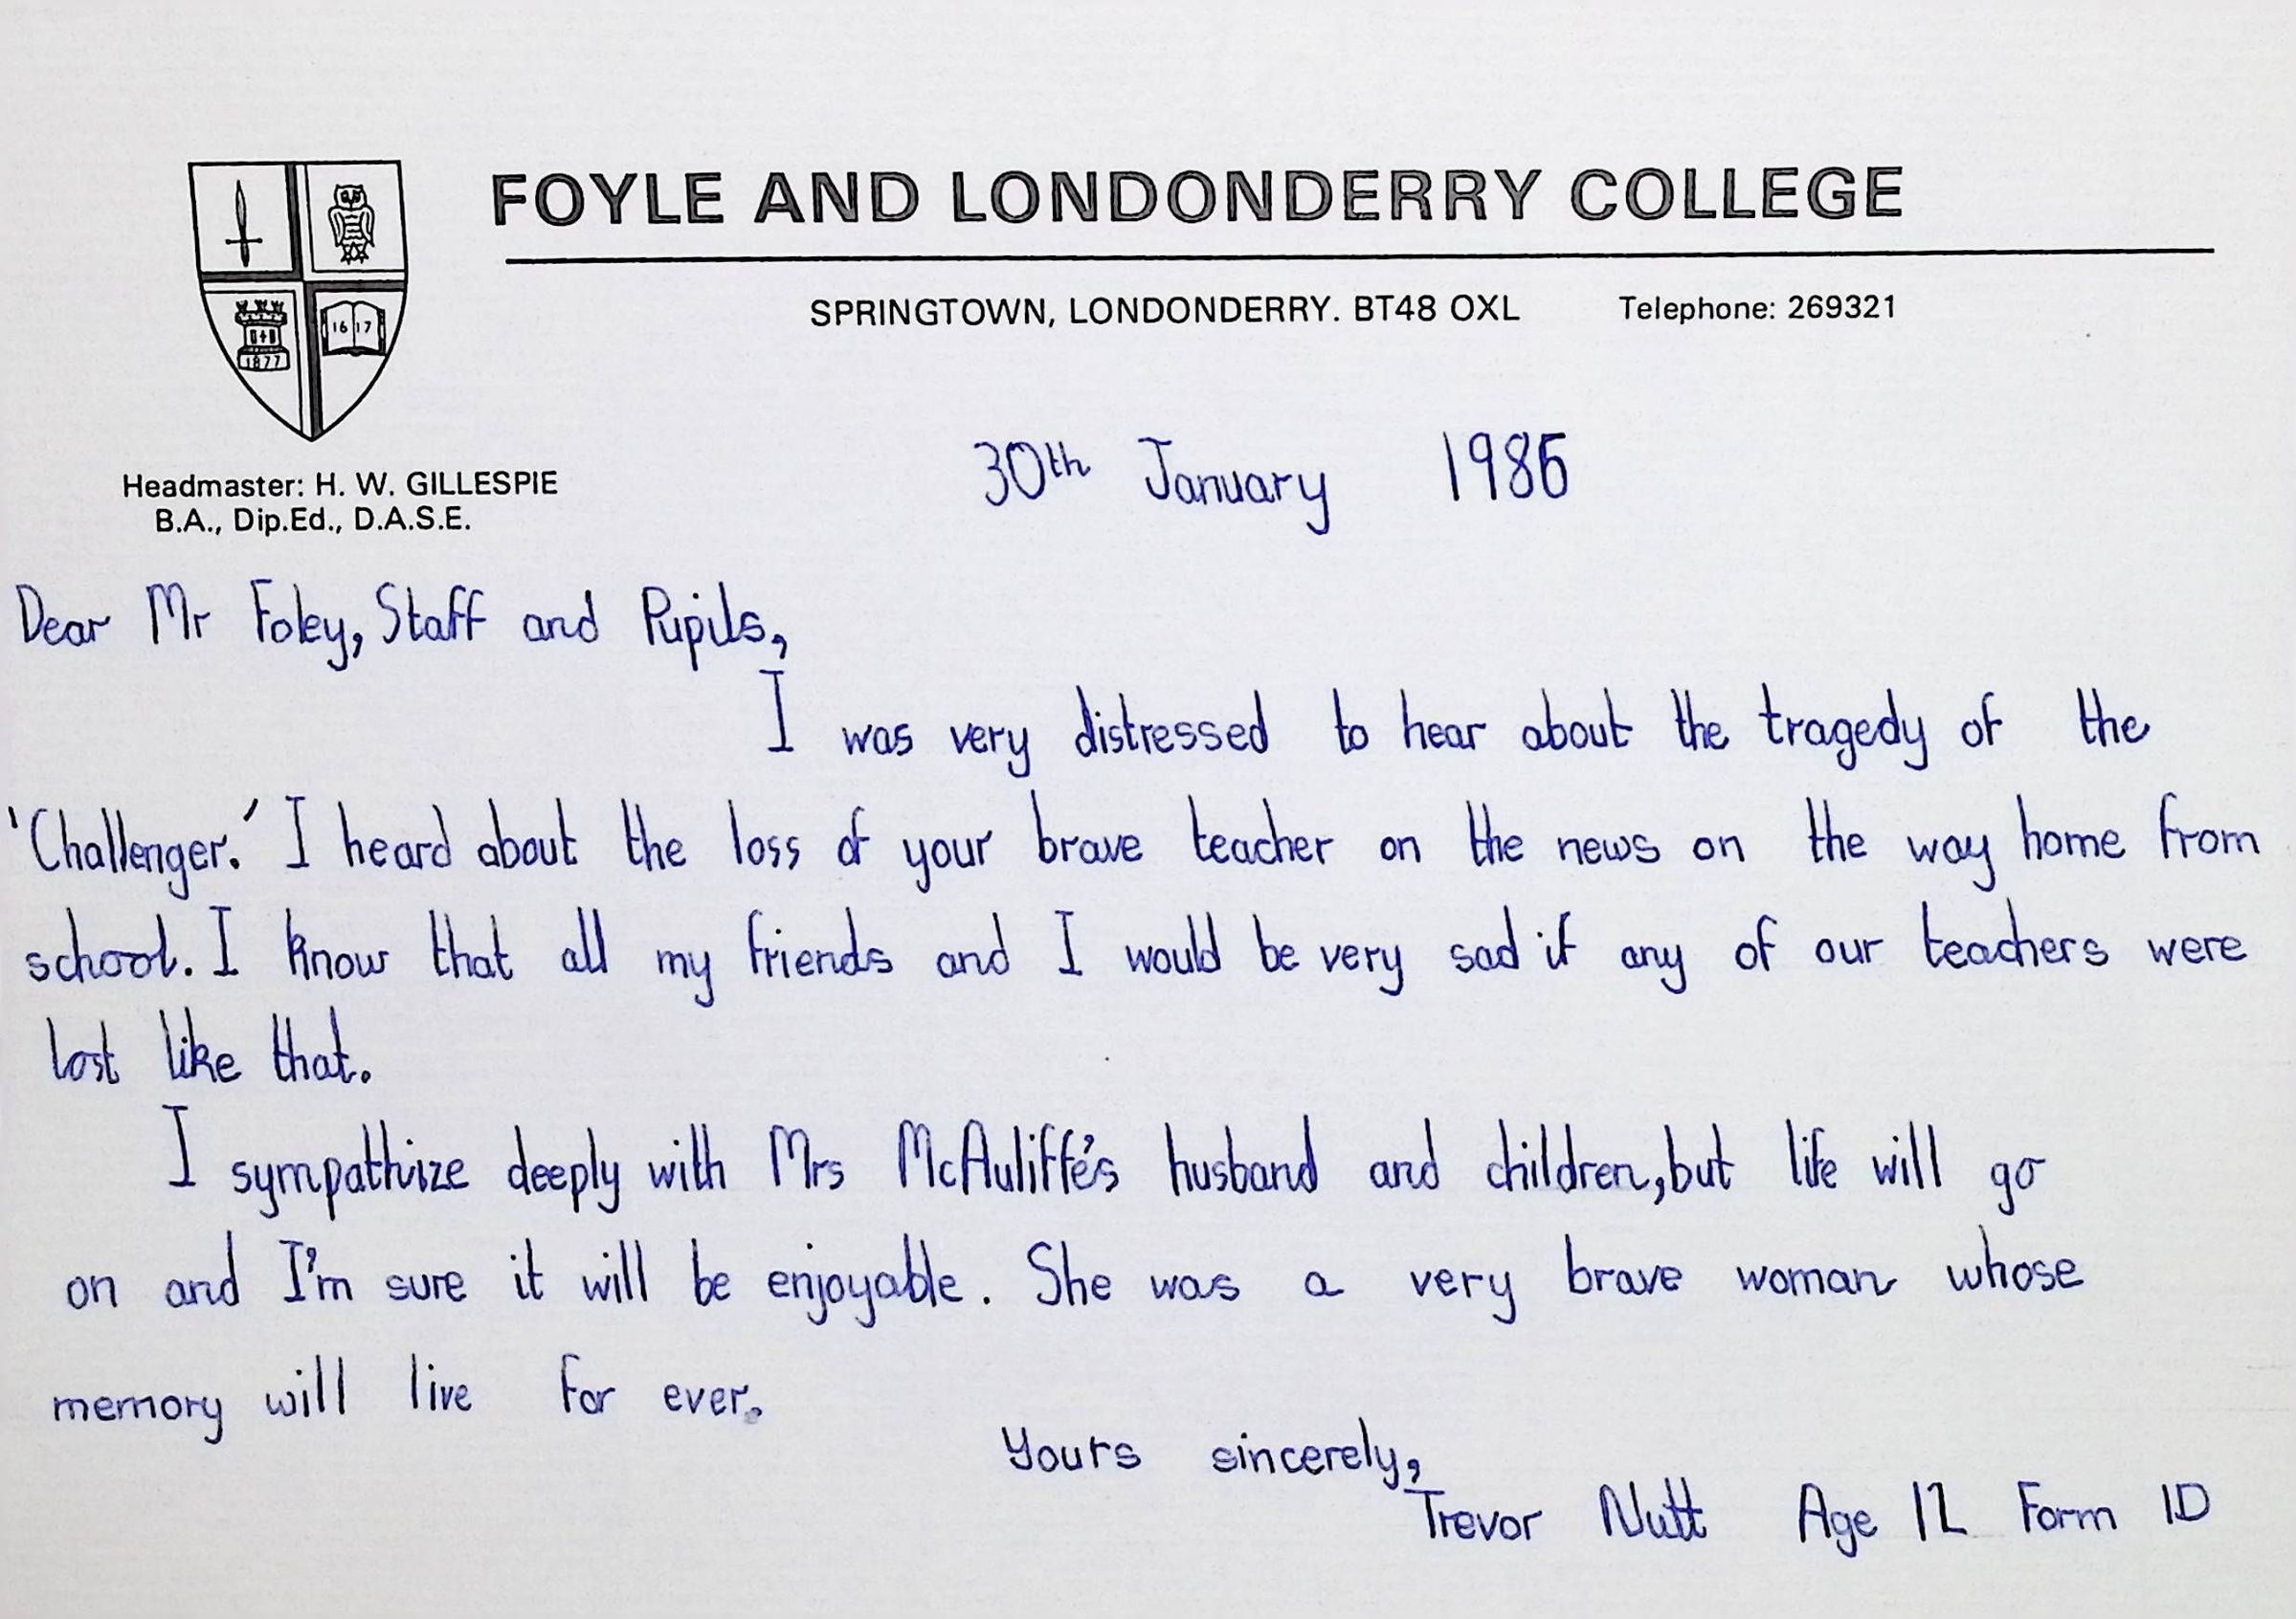 FOYLE AND LONDONDERRY COLLEGE
SPRINGTOWN, LONDONDERRY. BT48 OXL Telephone: 269321
16 17
1877
Headmaster: H. W. GILLESPIE
B.A., Dip.Ed., D.A.S.E.
30th January 1986
Dear Mr Foley, Staff and Pupils,
I was very distressed to hear about the tragedy of the
'Challenger.' I heard about the loss of your brave teacher on the news on the way home from
school. I know that all my friends and I would be very sad if any of our teachers were
lost like that.
I sympathize deeply with Mrs McAuliffe's husband and children, but life will go
on and I'm sure it will be enjoyable. She was a very brave woman whose
memory will live for ever.
Yours sincerely,
Trevor Nutt Age 12 Form 1D